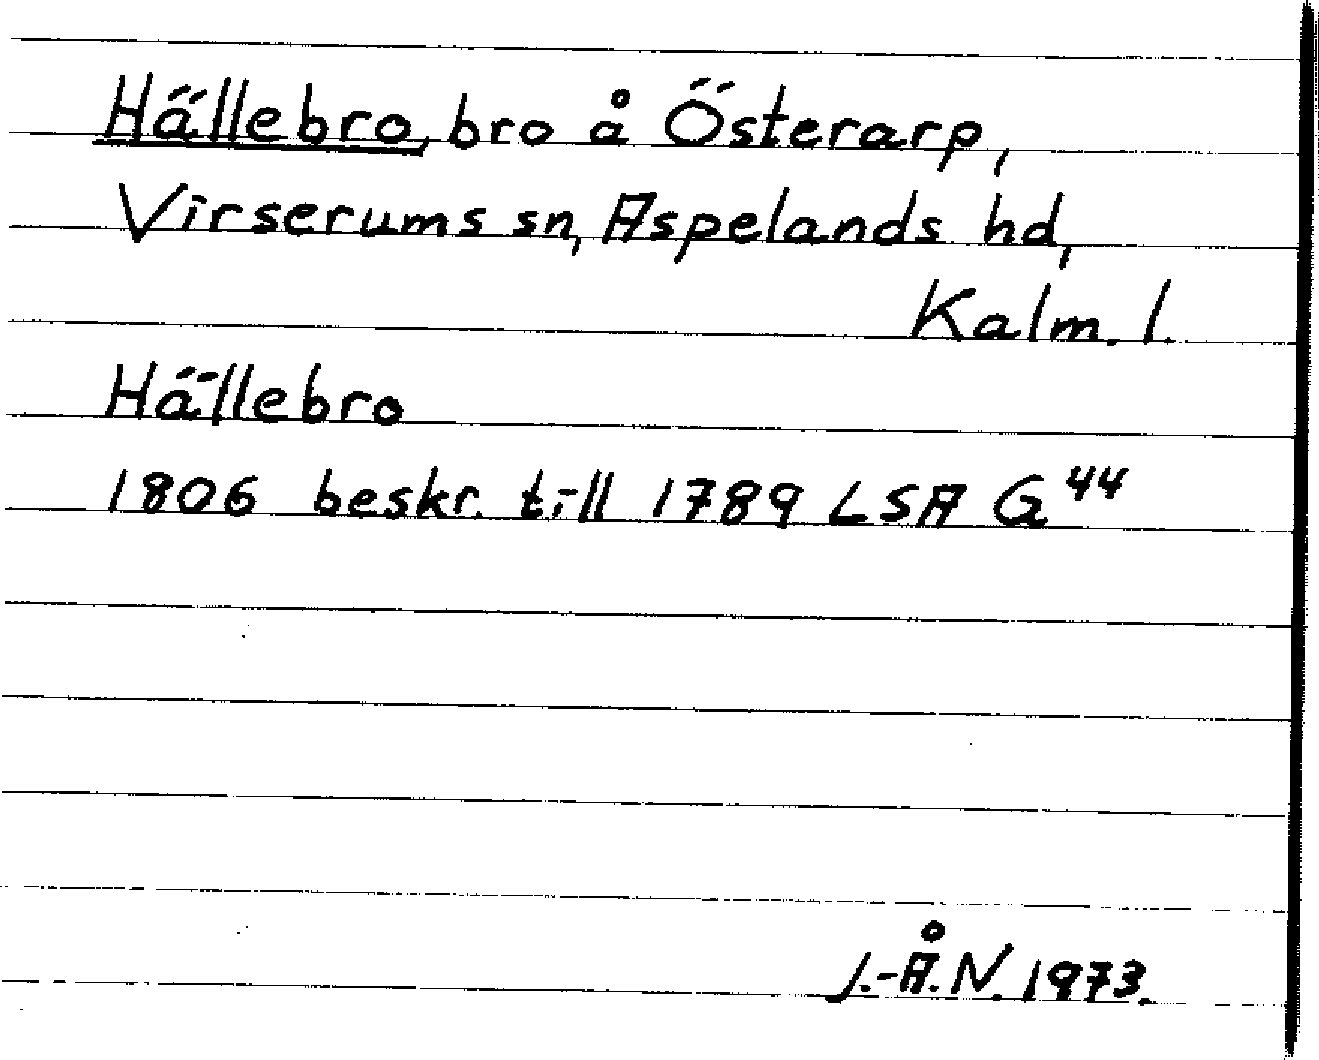 Hällebro, bro å Österarp,
Virserums sn, Aspelands hd,
Kalm. l.
Hällebro
1806 beskr. till 1789 LSA G44
J.-Å.N. 1973.